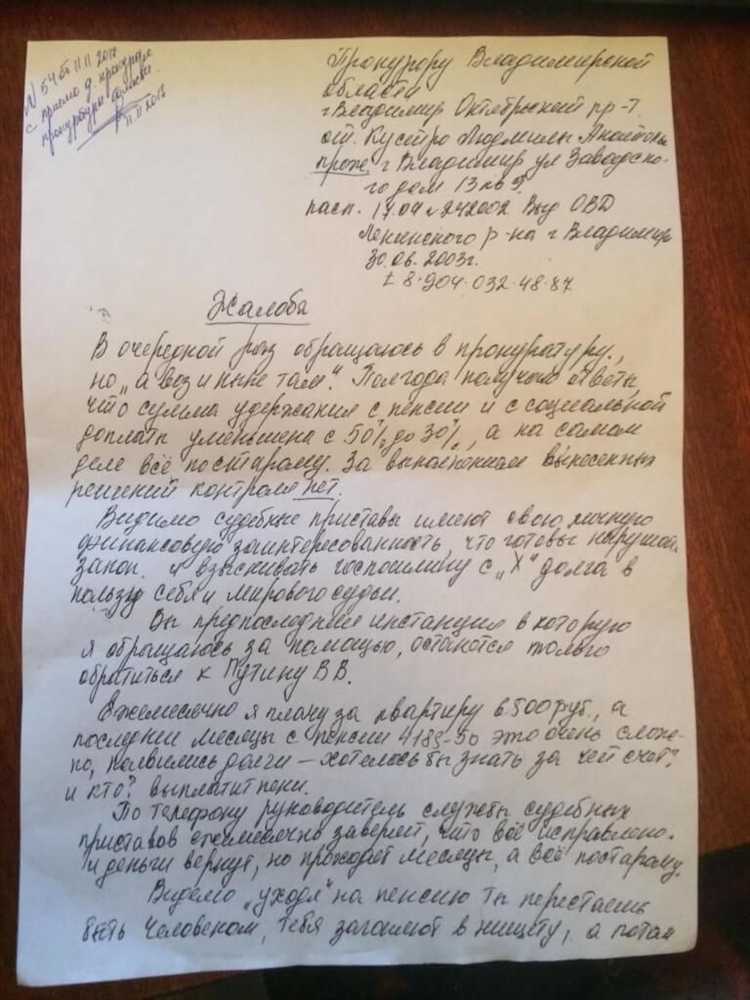 N 54 ж 11 11 2017
с приема д прокурора
прокуратуры области
11.11.2017
Прокурору Владимирской
области
г Владимир Октябрьский пр-т
от. Кустро Людмилы
прожи. г Владимир ул Завадско-
го дом 13 кв 9.
пасп. 17.04 N 242002 Выд ОВД
Ленинского р-на г Владимир
30.06.2003г.
t 8-904-032-48-87
Жалоба
В очередной раз обращаюсь в прокуратуру,
но „а воз и ныне там". Полгода получаю ответы,
что сумма удержания с пенсии и с социальной
доплаты уменьшена с 50% до 30%, а на самом
деле всё постарому. За выполнением вынесенных
решений контроля нет.
Видимо судебные приставы имеют свою личную
финансовую заинтересованность, что готовы нарушать
закон и взыскивать госпошлину с „Х" долга в
пользу себя и мирового судьи.
Вы предпоследняя инстанция в которую
я обращаюсь за помощью, останется только
обратиться к Путину В В.
Ежемесячно я плачу за квартиру 6.500 руб., а
последнии месяцы с пенсии 4185-50 это очень сложе-
но, появились долги – хотелось бы знать за чей счет?
и кто? выплатит пени.
По телефону руководитель службы судебных
приставов ежемесячно заверяет, что всё исправлено
и деньги вернут, но проходят месяцы, а всё постарому.
Видемо „уходя" на пенсию ты перестаешь
быть человеком, тебя загоняют в нищету, а потом